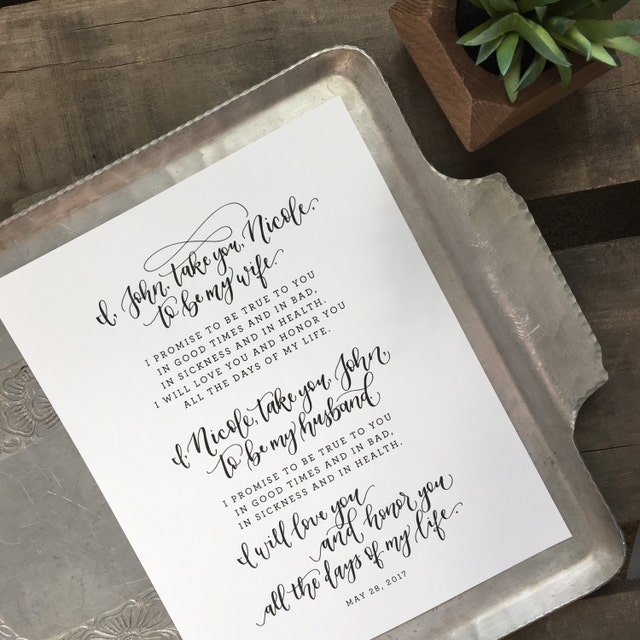 I, John, take you, Nicole,
to be my wife.
I PROMISE TO BE TRUE TO YOU
IN GOOD TIMES AND IN BAD,
IN SICKNESS AND IN HEALTH.
I WILL LOVE YOU AND HONOR YOU
ALL THE DAYS OF MY LIFE.
I, Nicole, take you, John,
to be my husband
I PROMISE TO BE TRUE TO YOU
IN GOOD TIMES AND IN BAD,
IN SICKNESS AND IN HEALTH.
I will love you
and honor you
all the days of my life.
MAY 28, 2017